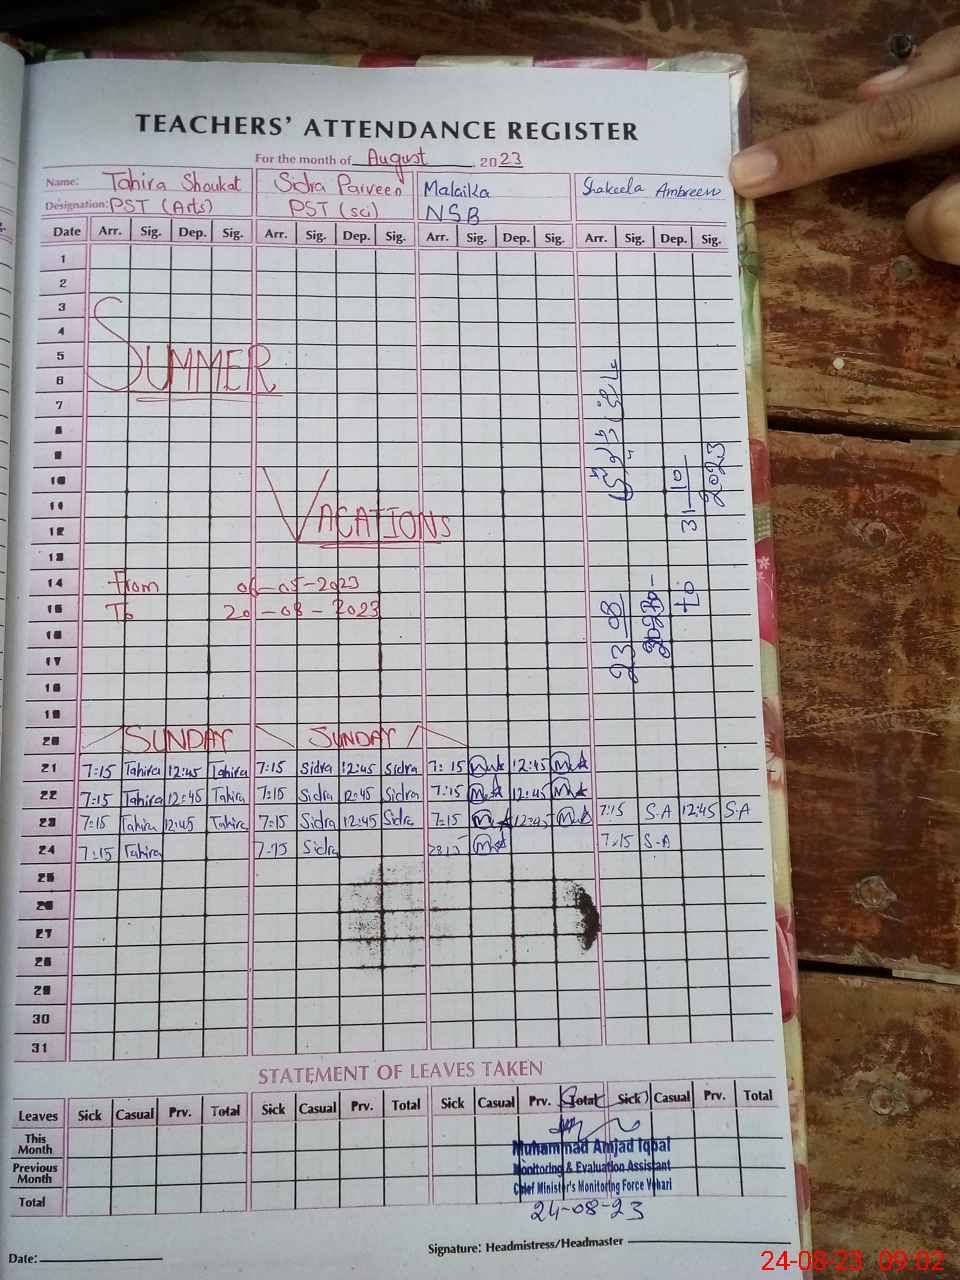 TEACHERS' ATTENDANCE REGISTER
For the month of August, 2023
Name: Tahira Shoukat Sidra Parveen Malaika Shakeela Ambreen
Designation: PST (Arts) PST (sci) NSB
Date Arr. Sig. Dep. Sig. Arr. Sig. Dep. Sig. Arr. Sig. Dep. Sig. Arr. Sig. Dep. Sig.
1
2
3
4
5
SUMMER
6
7
8
9
10
11
VACATIONS
12
13
14 From 06-05-2023
15 To 20-08-2023
16
17
18
19
23-08
2023
to
31-10
2023
20 SUNDAY SUNDAY
21 7:15 Tahira 12:45 Tahira 7:15 Sidra 12:45 Sidra 7:15 12:45
22 7:15 Tahira 12:45 Tahira 7:15 Sidra 12:45 Sidra 7:15 12:45
23 7:15 Tahira 12:45 Tahira 7:15 Sidra 12:45 Sidra 7:15 12:45 7:15 S.A 12:45 S-A
24 7:15 Tahira 7:15 Sidra 7:15 S-A
25
26
27
28
29
30
31
STATEMENT OF LEAVES TAKEN
Leaves Sick Casual Prv. Total Sick Casual Prv. Total Sick Casual Prv. Total Sick Casual Prv. Total
This Month
Previous Month
Total
Muhammad Amjad Iqbal
Monitoring & Evaluation Assistant
Chief Minister's Monitoring Force Vehari
24-08-23
Date: Signature: Headmistress/Headmaster
24-08-23 09:02